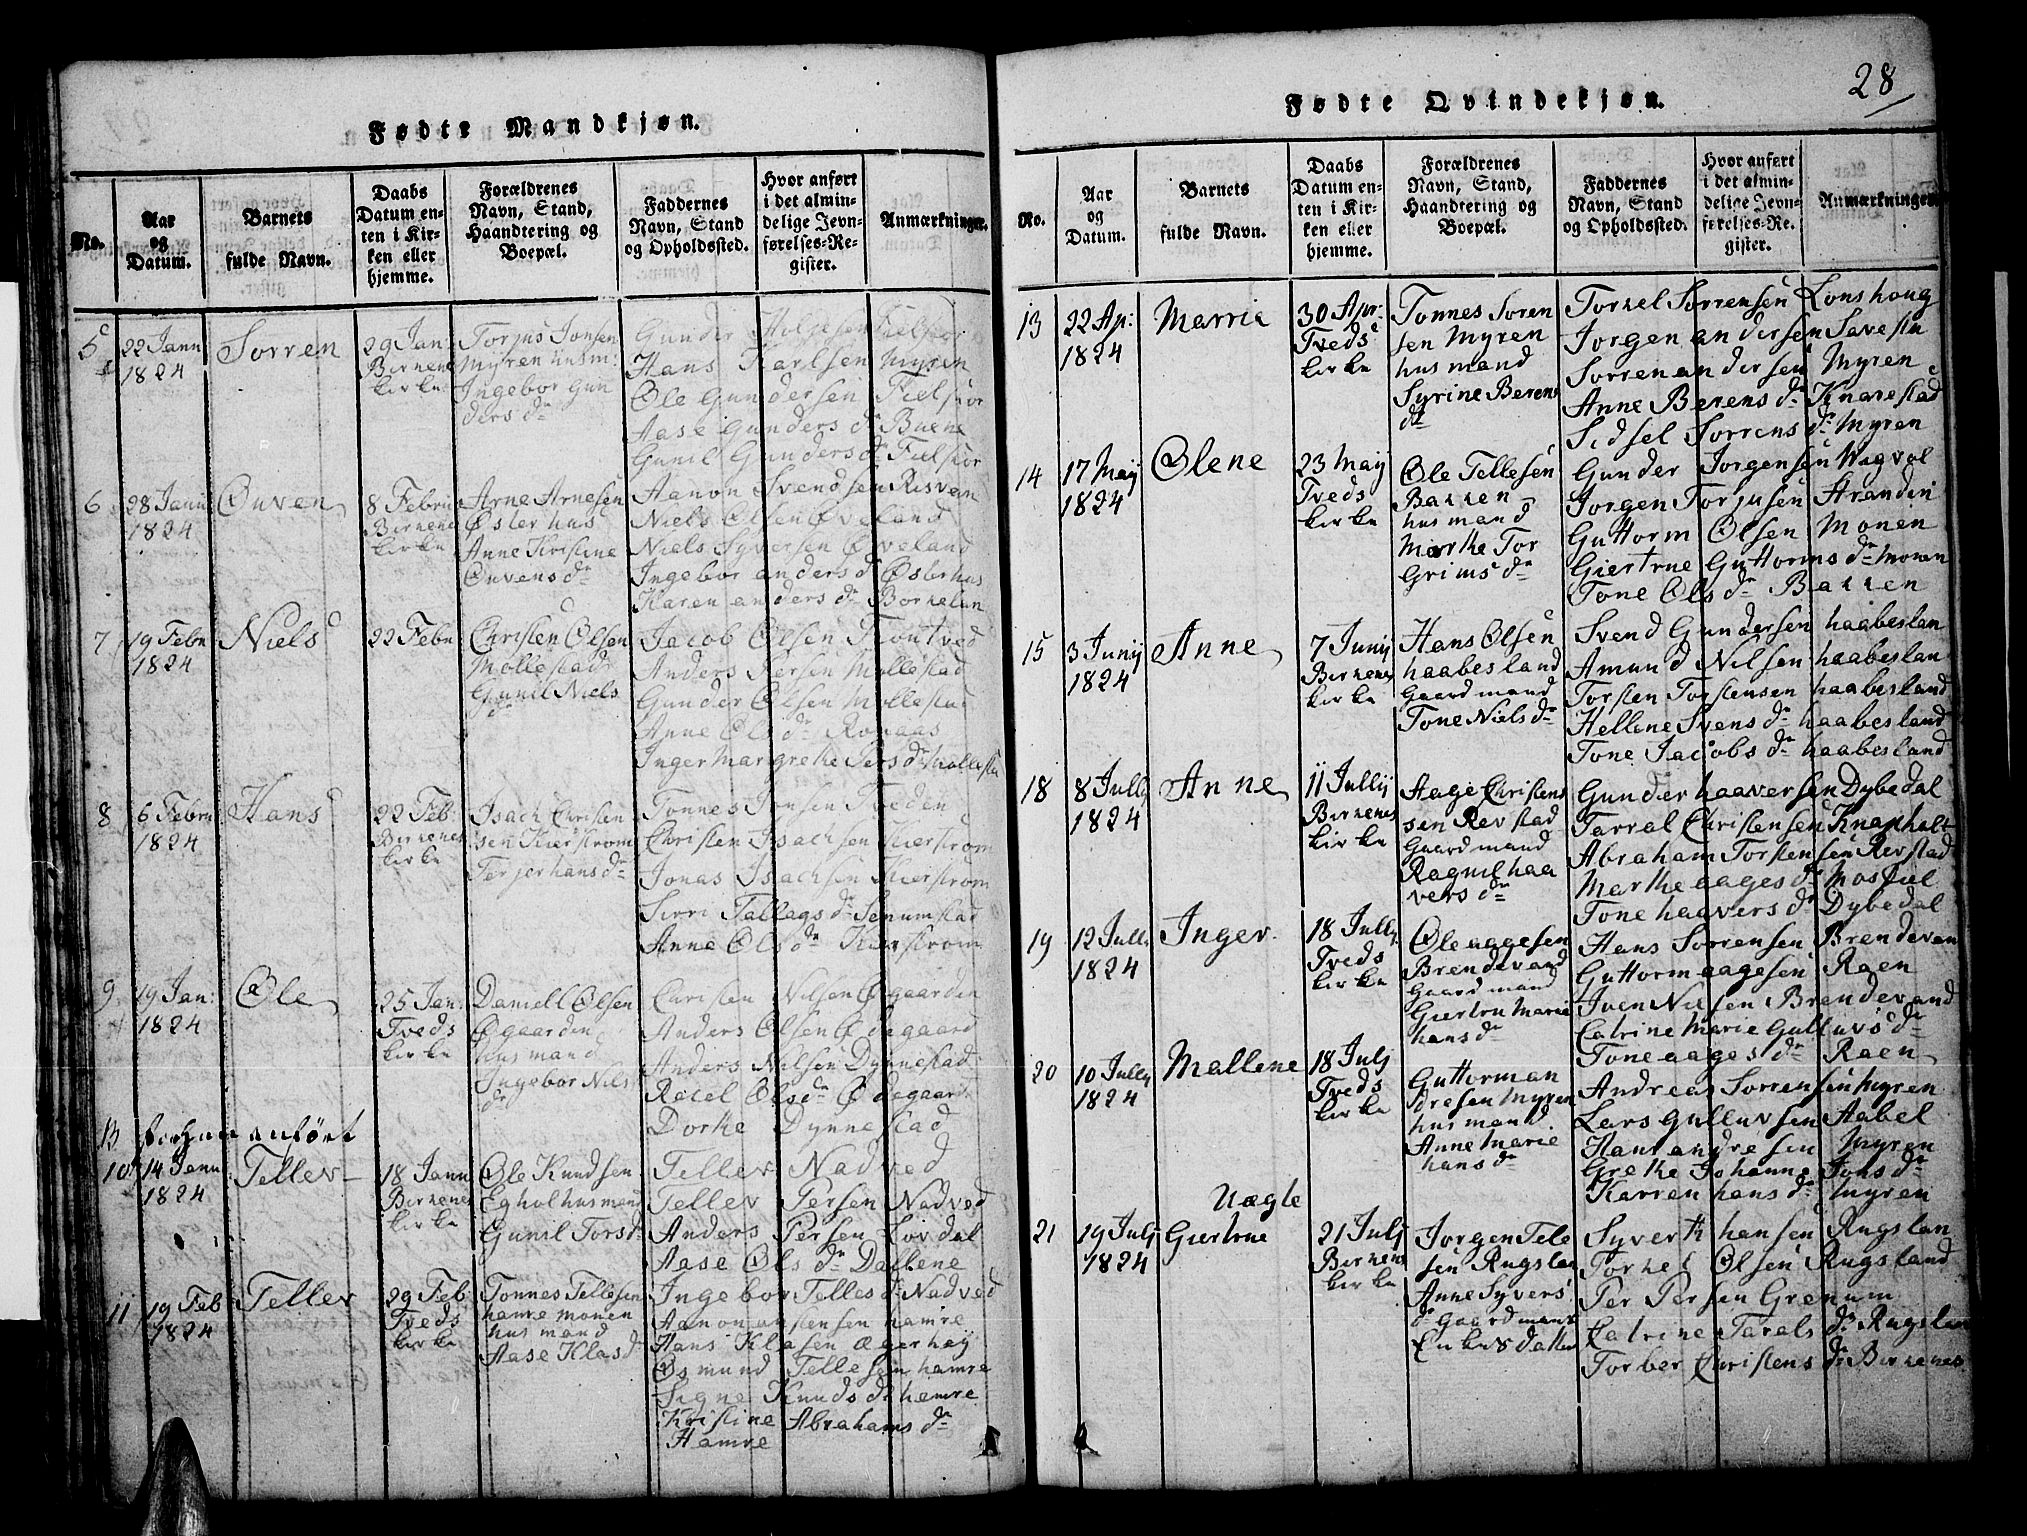 Fødte Mandkjøn.
No.
Aar
og
Datum.
Barnets
fulde Navn.
Daabs
Datum en-
ten i Kir-
ken eller
hjemme.
Forældrenes
Navn, Stand,
Haandtering og
Boepæl.
Faddernes
Navn, Stand
og Opholdssted.
Hvor anført
i det almin-
delige Jevn-
førelses-Re-
gister.
Anmærkninger.
5
22 Jann
1824
Sørren
29 Jan:
Birkenes
kirke
Torjus Jonsen
Myren husm:
Ingebor Gun
dersdr
Gunder Holgesen Fielskor
Hans Karlsen Myren
Ole Gundersen Fielskor
Aase Gundersdr Buene
Gunil Gundersdr Fielskor
6
28 Janu
1824
Onven
8 Febru
Birkenes
kirke
Arne Arnesen
Østerhus
Anne Kristine
Onvensdr
Aanon Svendsen Risvein
Niels Olsen Øveland
Niels Syversen Øveland
Ingebor andersd Østerhus
Karen andersdr Borkelun
7
19 Febru
1824
Niels
22 Febru
Christen Olsen
Mollestad
Gunil Niels
dr
Jacob Olsen Tontved
Anders Persen Mollestad
Gunder Olsen Mollestad
Anne Olsdr Ronaas
Inger Margrethe Persdr Mollesta
8
6 Febru
1824
Hans
22 Feb:
Birkenes
kirke
Isach Christen
sen Kierstrom
Terjer hansdr
Tonnes Jonsen Tveden
Christen Isachsen Kierstrom
Jonas Isachsen Kierstrom
Sirri Tallagsdr Senumstad
Anne Olsdr Kierstrom
9
19 Jan:
1824
Ole
25 Jan:
Tveds
kirke
Daniell Olsen
Øgaarden
husmand
Ingebor Nils
dr
Christen Nilsen Øgaarden
Anders Olsen Ødegaard
Anders Nilsen Dynnestad
Racel Olsdr Ødegaard
Dorthe Dynnestad
13 forhen anført
10
14 Janu
1824
Tellev
18 Jann
Birkenes
kirke
Ole Knudsen
Eghol husmand
Gunil Torstdr
Tellev Nadved
Tellev Persen Nadved
Anders Persen Lovdal
Aase Olsdr Dalbene
Ingebor Tellesdr Nadved
11
19 Feb
1824
Tellev
29 Feb
Tveds
kirke
Tonnes Tellesen
hamre monen
husmand
Aase Klasdr
Aanon anstensen hamre
Hans Klasen Ægerhey
Osmund Tellesen hamre
Signe Knudsdr hamre
Kristine Abrahamsdr
Hamre
28
Fødte Qvindekjøn.
No.
Aar
og
Datum.
Barnets
fulde Navn.
Daabs
Datum en-
ten i Kir-
ken eller
hjemme.
Forældrenes
Navn, Stand,
Haandtering og
Boepæl.
Faddernes
Navn, Stand
og Opholdssted.
Hvor anført
i det almin-
delige Jevn-
førelses-Re-
gister.
Anmærkninger
13
22 Ap:
1824
Marrie
30 Apr:
Tveds
kirke
Tonnes Soren
sen Myren
husmand
Syrine Berens
dr
Torkel Sørrensen Lonshoug
Jorgen andersen Savesta
Sorren andersen Myren
Anne Berensdr Knarestad
Sidsel Sorrensdr Myren
14
17 Maij
1824
Olene
23 Maij
Tveds
kirke
Ole Tellesen
Bakken
husmand
Marthe Tor
Grimsdr
Gunder Jorgensen Wagvol
Jorgen Torjusen Aranden
Guttorm Olsen Monen
Giertrue Guttormsdr Monen
Tone Olsdr Bakken
15
3 Junij
1824
Anne
7 Junij
Birkenes
kirke
Hans Olsen
haabesland
Gaardmand
Tone Nielsdr
Svend Gundersen haabeslan
Amund Nilsen haabeslan
Torsten Torstensen haabesland
Hellene Svensdr haabesland
Tone Jacobsdr haabesland
18
8 Jully
1824
Anne
11 Jullij
Birkenes
kirke
Aage Christens
sen Revstad
Gaardmand
Ragnil haa
versdr
Gunder haaversen Dybedal
Tarral Christensen Knapholt
Abraham Torstensen Revstad
Marthe aagesdr Mosfiel
Tone haaversdr Dybedal
19
12 Jully
1824
Inger
18 Jully
Tveds
kirke
Ole aagesen
Brendevand
Gaardmand
Giertru Marie
hansdr
Hans Sorrensen Brendevan
Guttorm aagesen Raen
Iven Nilsen Brendevand
Catrine Marie Gulluvsdr
Tone aagesdr Raen
20
10 Jully
1824
Mallene
18 Julj
Tveds
kirke
Guttorm an
dresen Myren
husmand
Anne Marie
hansdr
Andreas Sorrensen Myren
Lars Gulluvsen Aabel
Hans andresen Myren
Grethe Johanne Jonsdr
Karren hansdr Myren
Uægte
21
19 Julj
1824
Giertrue
21 Julj
Birkenes
kirke
Jorgen Tele
sen Rugslan
Anne Syvers
dr Gaardmans
Enkes datter
Syvert hansen Rugslan
Torkel Olsen Rugsland
Per Persen Grenum
Catrine Taralsdr Rugslan
Torber Christensdr Birkenes